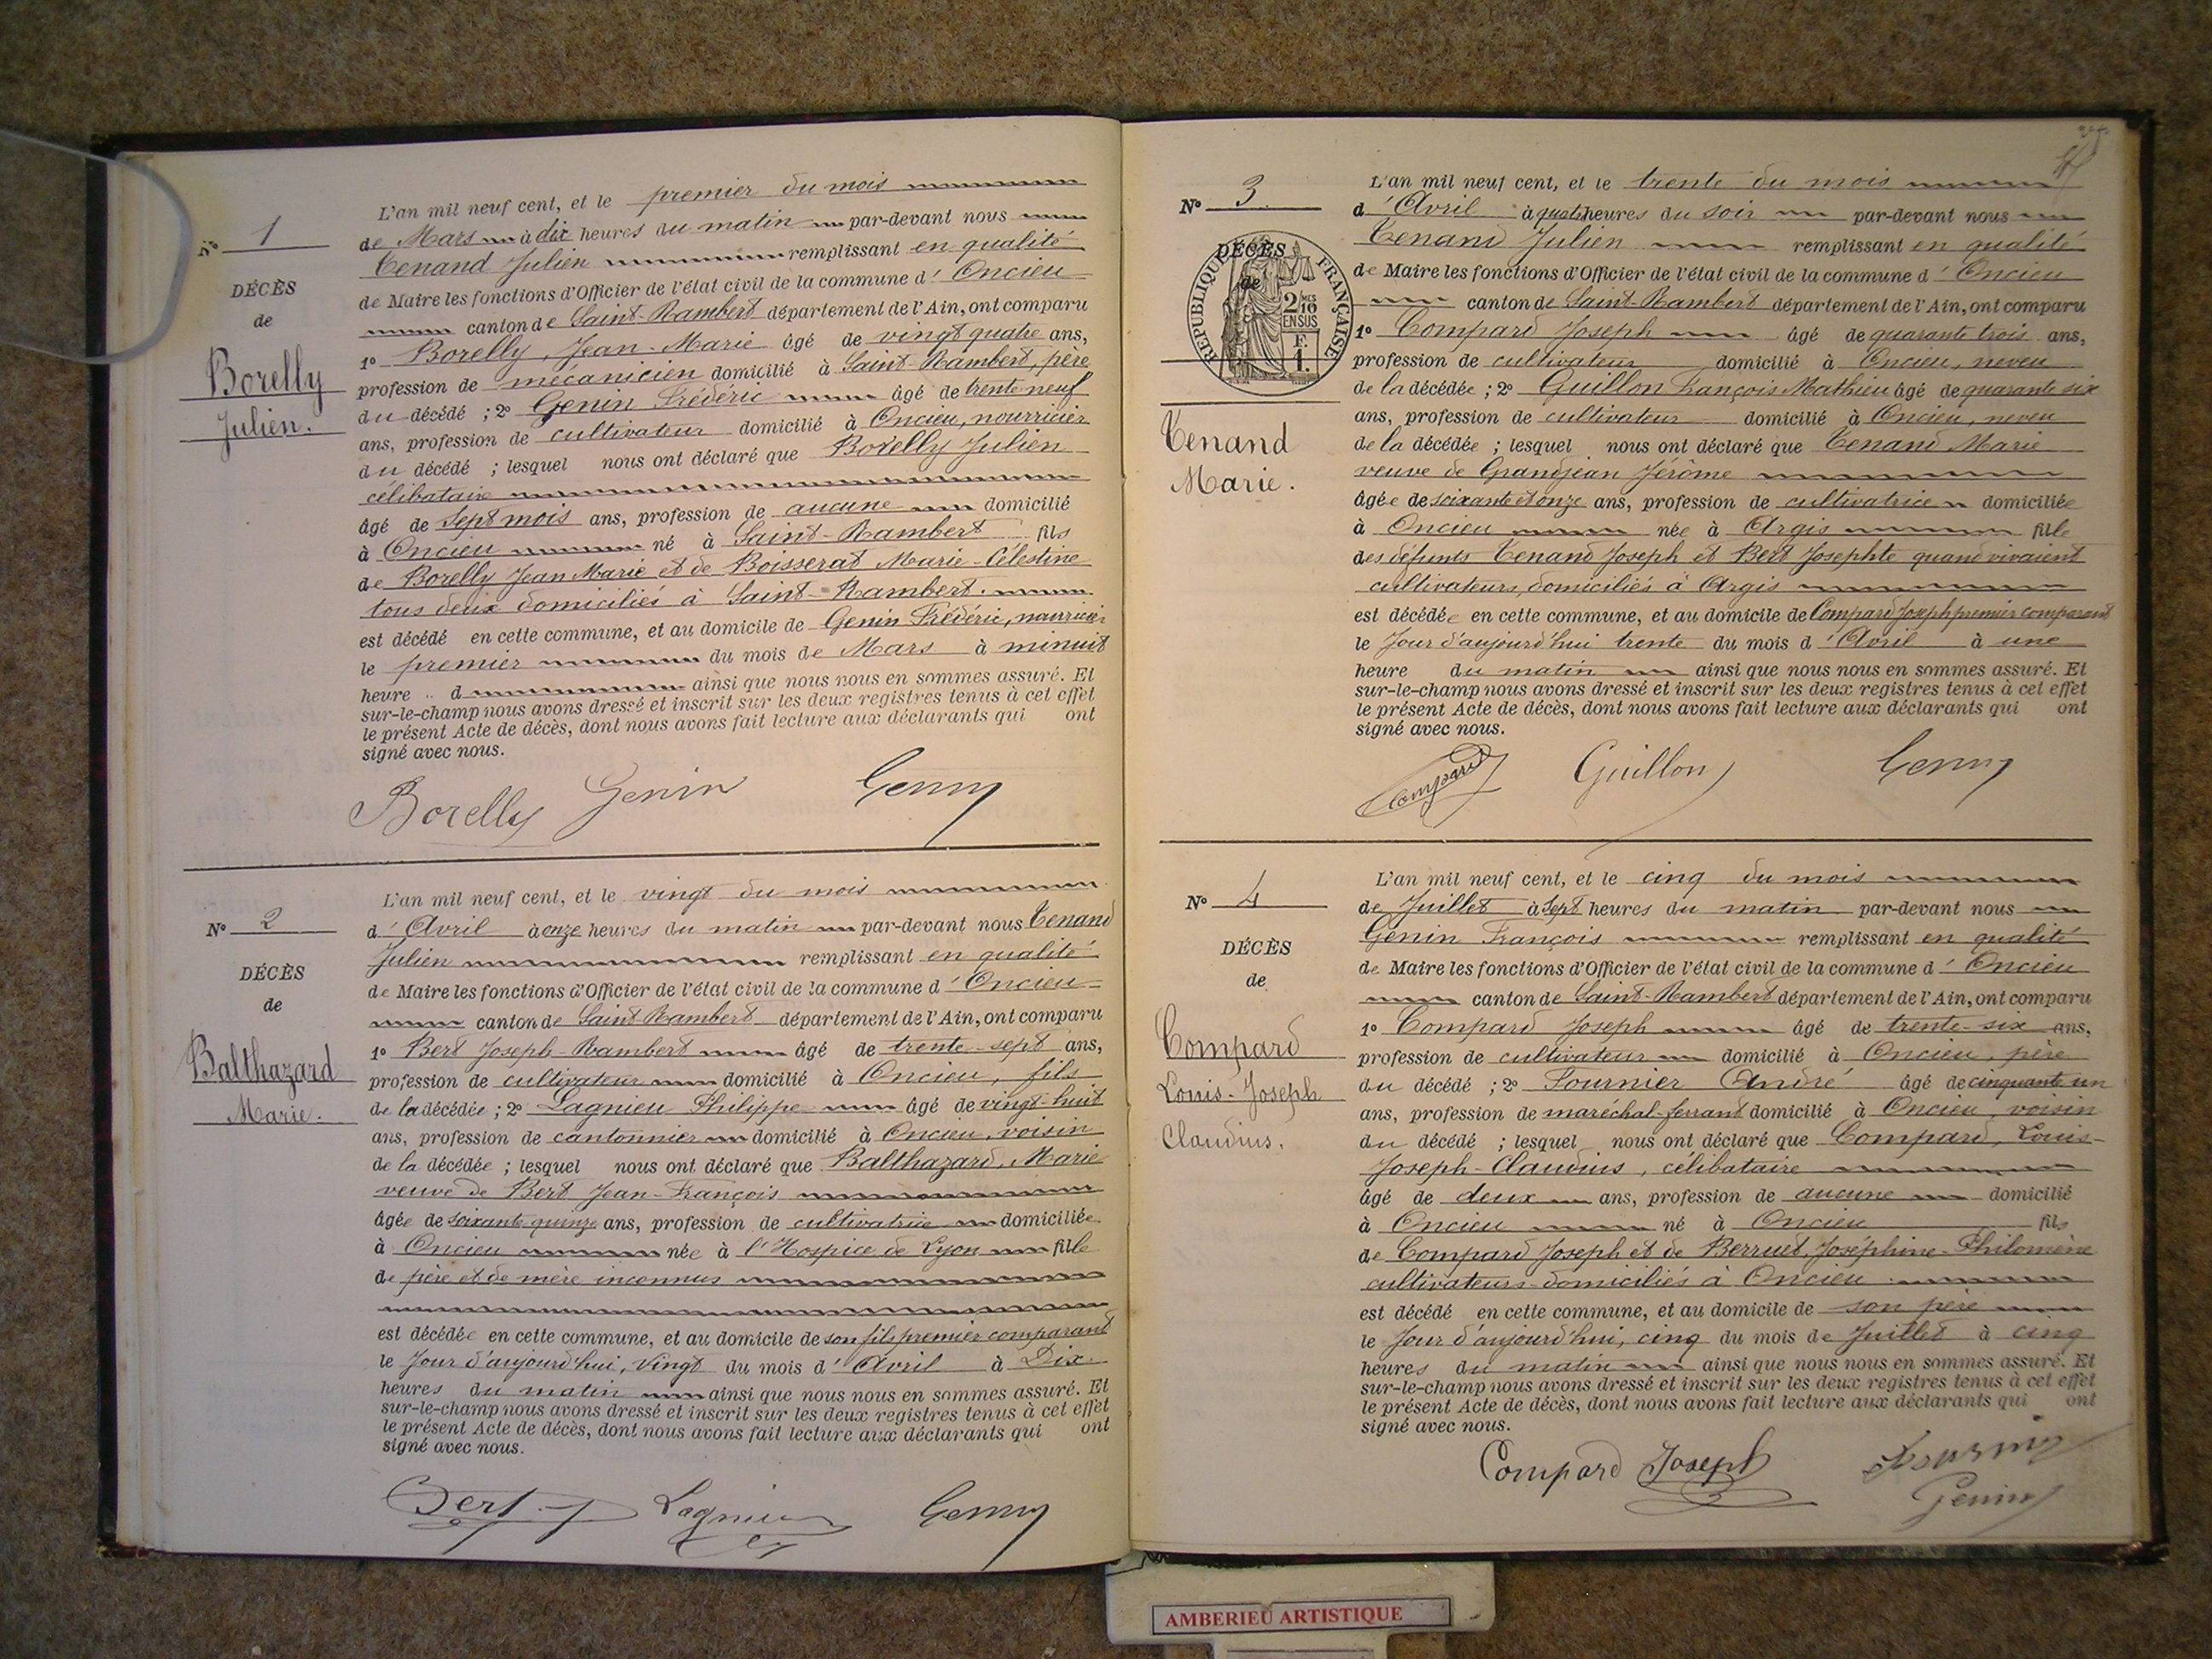 N° 1
DÉCÈS
de
Borelly
Julien.
L'an mil neuf cent, et le premier du mois
de Mars à dix heures du matin par-devant nous
Tenand Julien remplissant en qualité
de Maire les fonctions d'Officier de l'état civil de la commune d'Oncieu
canton de Saint-Rambert département de l'Ain, ont comparu
1° Borelly, Jean-Marie âgé de vingt quatre ans,
profession de mécanicien domicilié à Saint-Rambert, père
du décédé ; 2° Genin Frédéric âgé de trente neuf
ans, profession de cultivateur domicilié à Oncieu, nourricier
du décédé ; lesquel nous ont déclaré que Borelly Julien
célibataire
âgé de sept mois ans, profession de aucune domicilié
à Oncieu né à Saint-Rambert fils
de Borelly Jean Marie et de Boisserat Marie-Célestine
tous deux domiciliés à Saint-Rambert.
est décédé en cette commune, et au domicile de Genin Frédéric, nourricier
le premier du mois de Mars à minuit
heure d ainsi que nous nous en sommes assuré. Et
sur-le-champ nous avons dressé et inscrit sur les deux registres tenus à cet effet
le présent Acte de décès, dont nous avons fait lecture aux déclarants qui ont
signé avec nous.
Borelly Genin
N° 2
DÉCÈS
de
Balthazard
Marie.
L'an mil neuf cent, et le vingt du mois
d'Avril à onze heures du matin par-devant nous Tenand
Julien remplissant en qualité
de Maire les fonctions d'Officier de l'état civil de la commune d'Oncieu
canton de Saint-Rambert département de l'Ain, ont comparu
1° Bert Joseph-Rambert âgé de trente-sept ans,
profession de cultivateur domicilié à Oncieu, fils
de la décédée ; 2° Lagnieu Philippe âgé de vingt-huit
ans, profession de cantonnier domicilié à Oncieu, voisin
de la décédée ; lesquel nous ont déclaré que Balthazard, Marie
veuve de Bert Jean-François
âgée de soixante quinze ans, profession de cultivatrice domiciliée
à Oncieu née à l'Hospice de Lyon fille
de père et de mère inconnus
est décédée en cette commune, et au domicile de son fils premier comparant
le Jour d'aujourd'hui, vingt du mois d'Avril à Dix
heures du matin ainsi que nous nous en sommes assuré. Et
sur-le-champ nous avons dressé et inscrit sur les deux registres tenus à cet effet
le présent Acte de décès, dont nous avons fait lecture aux déclarants qui ont
signé avec nous.
Bert Lagnieu
N° 3
DÉCÈS
de
RÉPUBLIQUE FRANÇAISE
2 MES
10
EN SUS
F.
1.
Tenand
Marie.
L'an mil neuf cent, et le trente du mois
d'Avril à quatre heures du soir par-devant nous
Tenand Julien remplissant en qualité
de Maire les fonctions d'Officier de l'état civil de la commune d'Oncieu
canton de Saint-Rambert département de l'Ain, ont comparu
1° Compard Joseph âgé de quarante trois ans,
profession de cultivateur domicilié à Oncieu, neveu
de la décédée ; 2° Guillon François Mathieu âgé de quarante six
ans, profession de cultivateur domicilié à Oncieu, neveu
de la décédée ; lesquel nous ont déclaré que Tenand Marie
veuve de Grandjean Jérôme
âgée de soixante et onze ans, profession de cultivatrice domiciliée
à Oncieu née à Argis fille
des défunts Tenand Joseph et Bert Josephte quand vivaient
cultivateurs, domiciliés à Argis
est décédée en cette commune, et au domicile de Compard Joseph premier comparant
le Jour d'aujourd'hui trente du mois d'Avril à une
heure du matin ainsi que nous nous en sommes assuré. Et
sur-le-champ nous avons dressé et inscrit sur les deux registres tenus à cet effet
le présent Acte de décès, dont nous avons fait lecture aux déclarants qui ont
signé avec nous.
Compard Guillon
N° 4
DÉCÈS
de
Compard
Louis-Joseph
Claudius.
L'an mil neuf cent, et le cinq du mois
de Juillet à sept heures du matin par-devant nous
Genin François remplissant en qualité
de Maire les fonctions d'Officier de l'état civil de la commune d'Oncieu
canton de Saint-Rambert département de l'Ain, ont comparu
1° Compard Joseph âgé de trente-six ans,
profession de cultivateur domicilié à Oncieu, père
du décédé ; 2° Fournier André âgé de cinquante un
ans, profession de maréchal-ferrant domicilié à Oncieu, voisin
du décédé ; lesquel nous ont déclaré que Compard, Louis-
Joseph-Claudius, célibataire
âgé de deux ans, profession de aucune domicilié
à Oncieu né à Oncieu fils
de Compard Joseph et de Berruet, Joséphine-Philomène
cultivateurs domiciliés à Oncieu
est décédé en cette commune, et au domicile de son père
le Jour d'aujourd'hui, cinq du mois de Juillet à cinq
heures du matin ainsi que nous nous en sommes assuré. Et
sur-le-champ nous avons dressé et inscrit sur les deux registres tenus à cet effet
le présent Acte de décès, dont nous avons fait lecture aux déclarants qui ont
signé avec nous.
Compard Joseph
Genin
AMBERIEU ARTISTIQUE